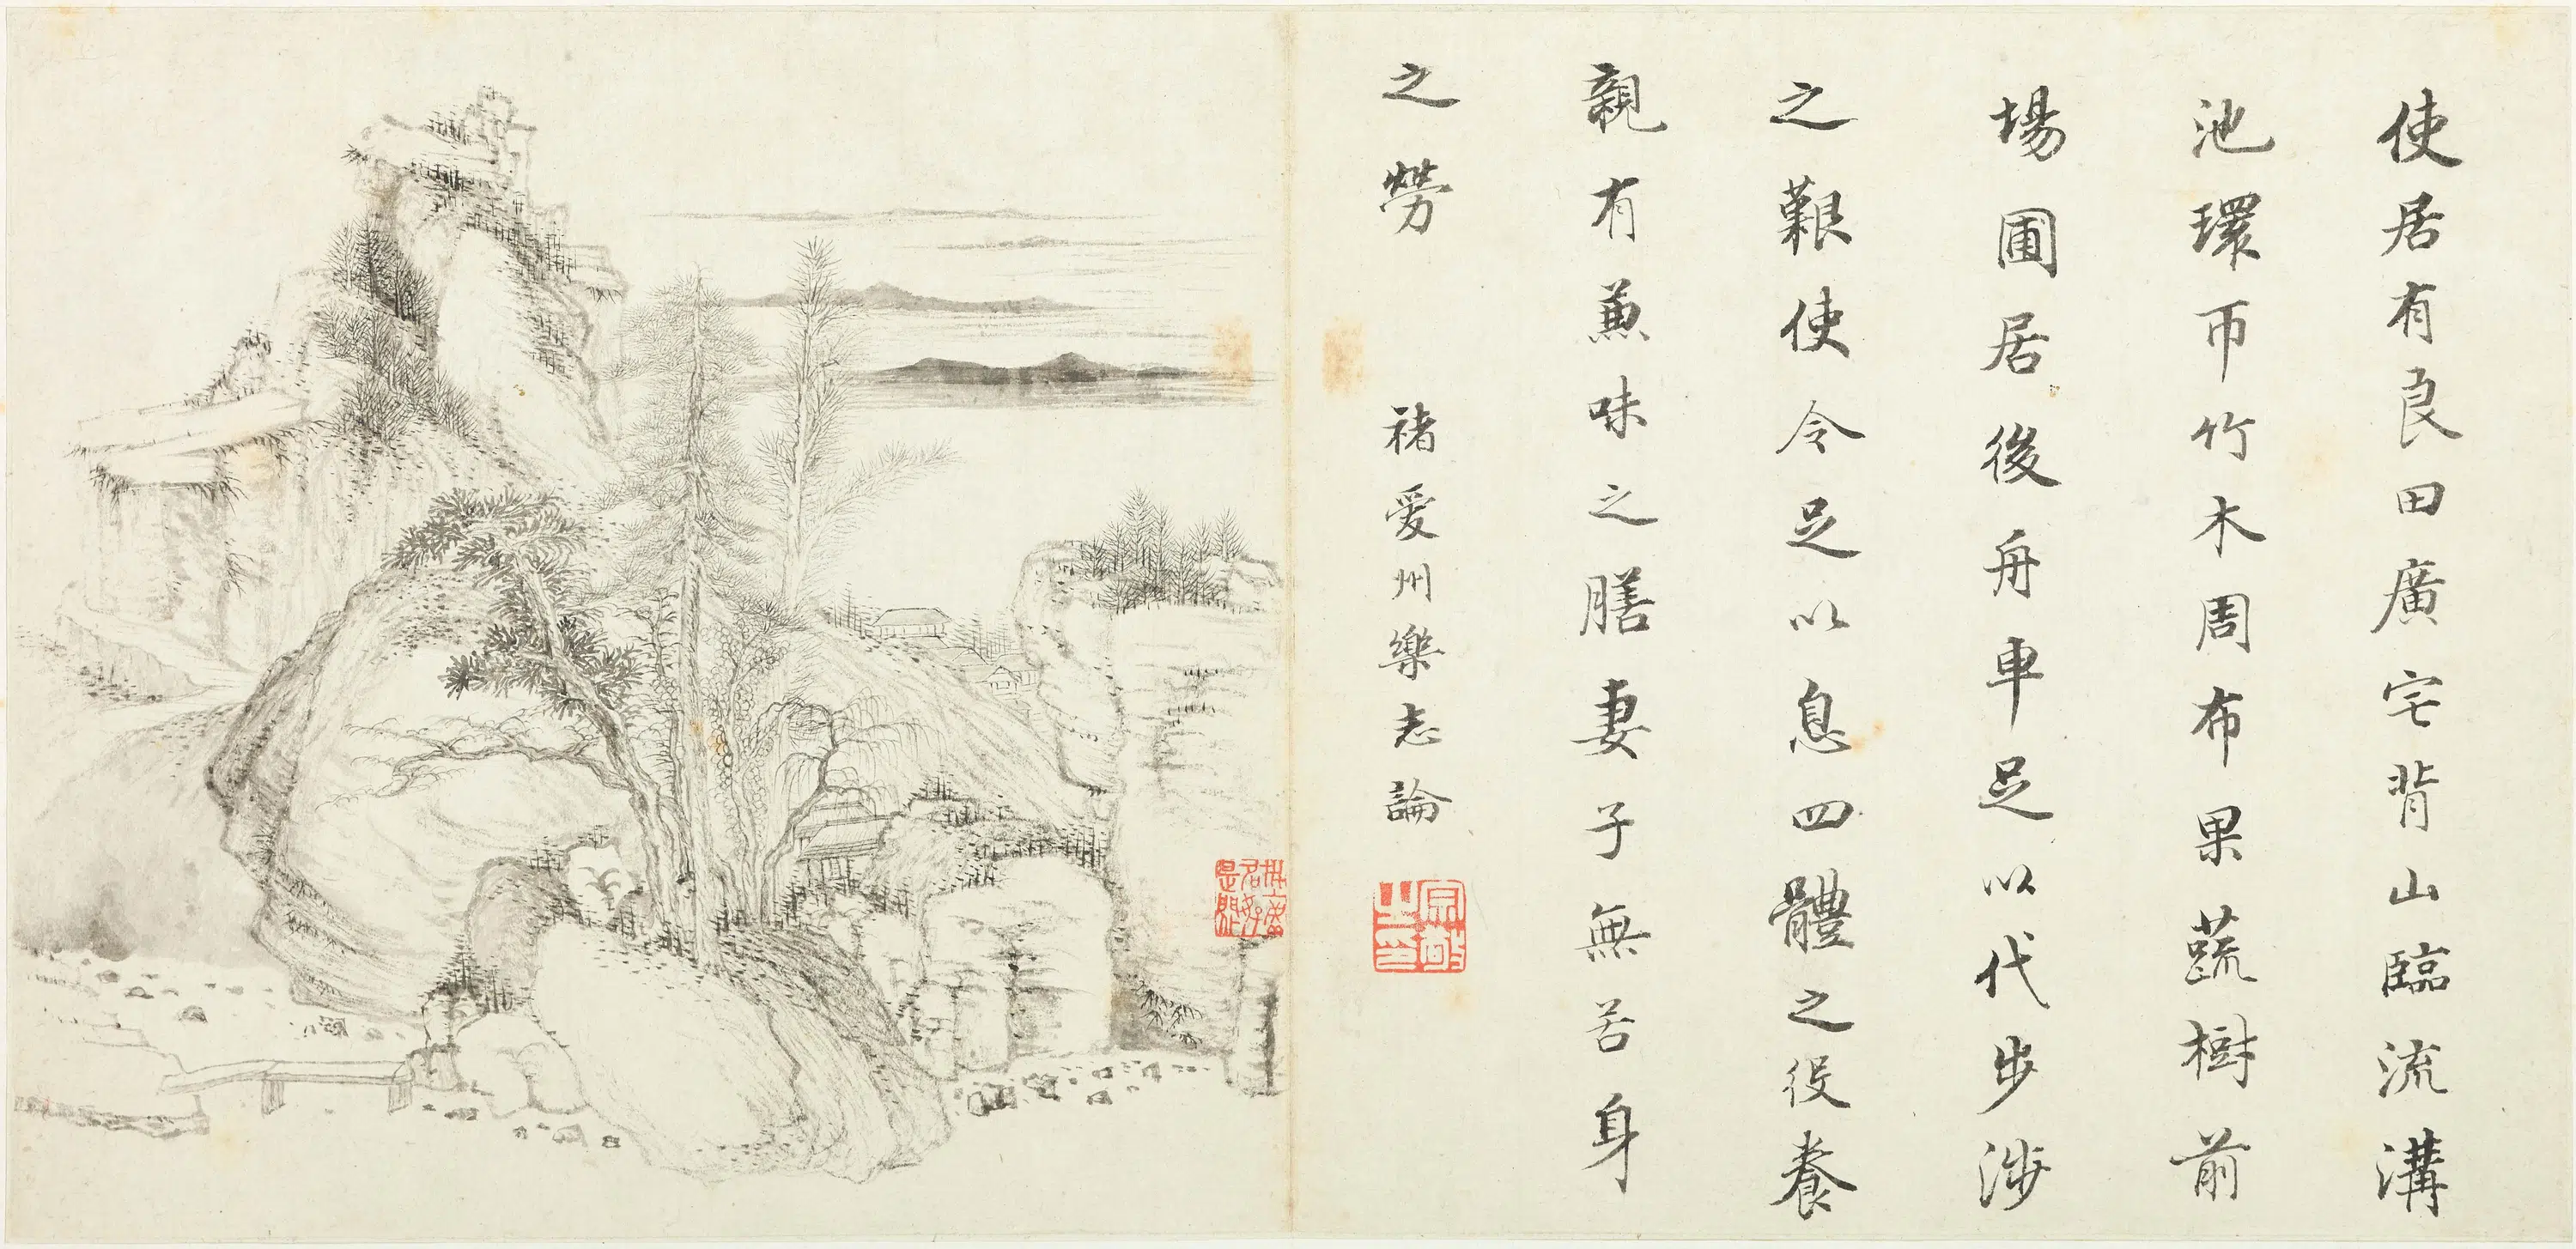 使居有良田廣宅背山臨流溝
池環帀竹木周布果蔬樹前
場圃居後舟車足以代步涉
之艱使令足以息四體之役養
親有兼味之膳妻子無苦身
之勞
褚愛州樂志論